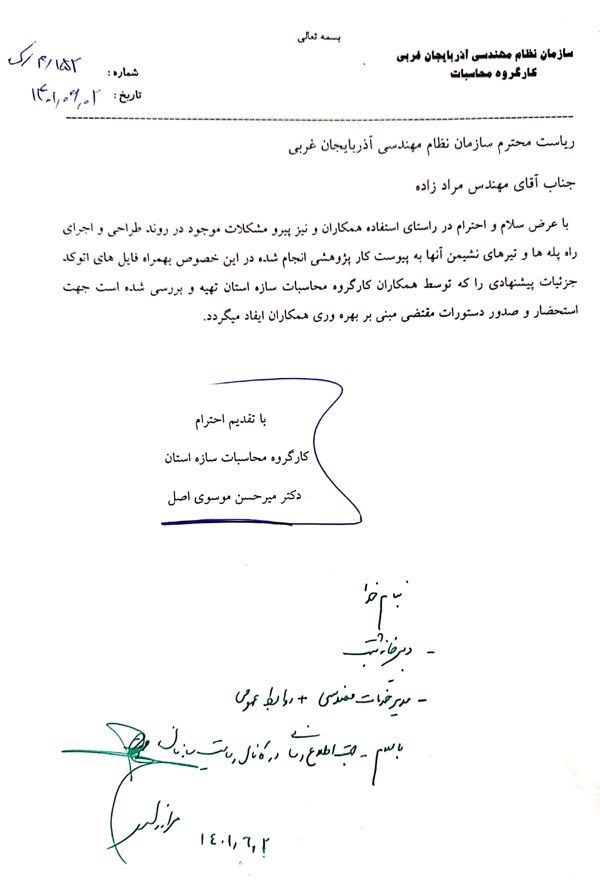 بسمه تعالی
سازمان نظام مهندسی آذربایجان غربی
کارگروه محاسبات
شماره: ۱۵۲/م/رک
تاریخ: ۱۴۰۱,۰۶,۰۲
ریاست محترم سازمان نظام مهندسی آذربایجان غربی
جناب آقای مهندس مراد زاده
با عرض سلام و احترام در راستای استفاده همکاران و نیز پیرو مشکلات موجود در روند طراحی و اجرای
راه پله ها و تیرهای نشیمن آنها به پیوست کار پژوهشی انجام شده در این خصوص بهمراه فایل های اتوکد
جزئیات پیشنهادی را که توسط همکاران کارگروه محاسبات سازه استان تهیه و بررسی شده است جهت
استحضار و صدور دستورات مقتضی مبنی بر بهره وری همکاران ایفاد میگردد.
با تقدیم احترام
کارگروه محاسبات سازه استان
دکتر میرحسن موسوی اصل
بنام خدا
- دبیرخانه ثبت
- مدیر خدمات مهندسی + روابط عمومی
با سلام - جهت اطلاع رسانی در کانال و سایت سازمان
۱۴۰۱,۶,۲